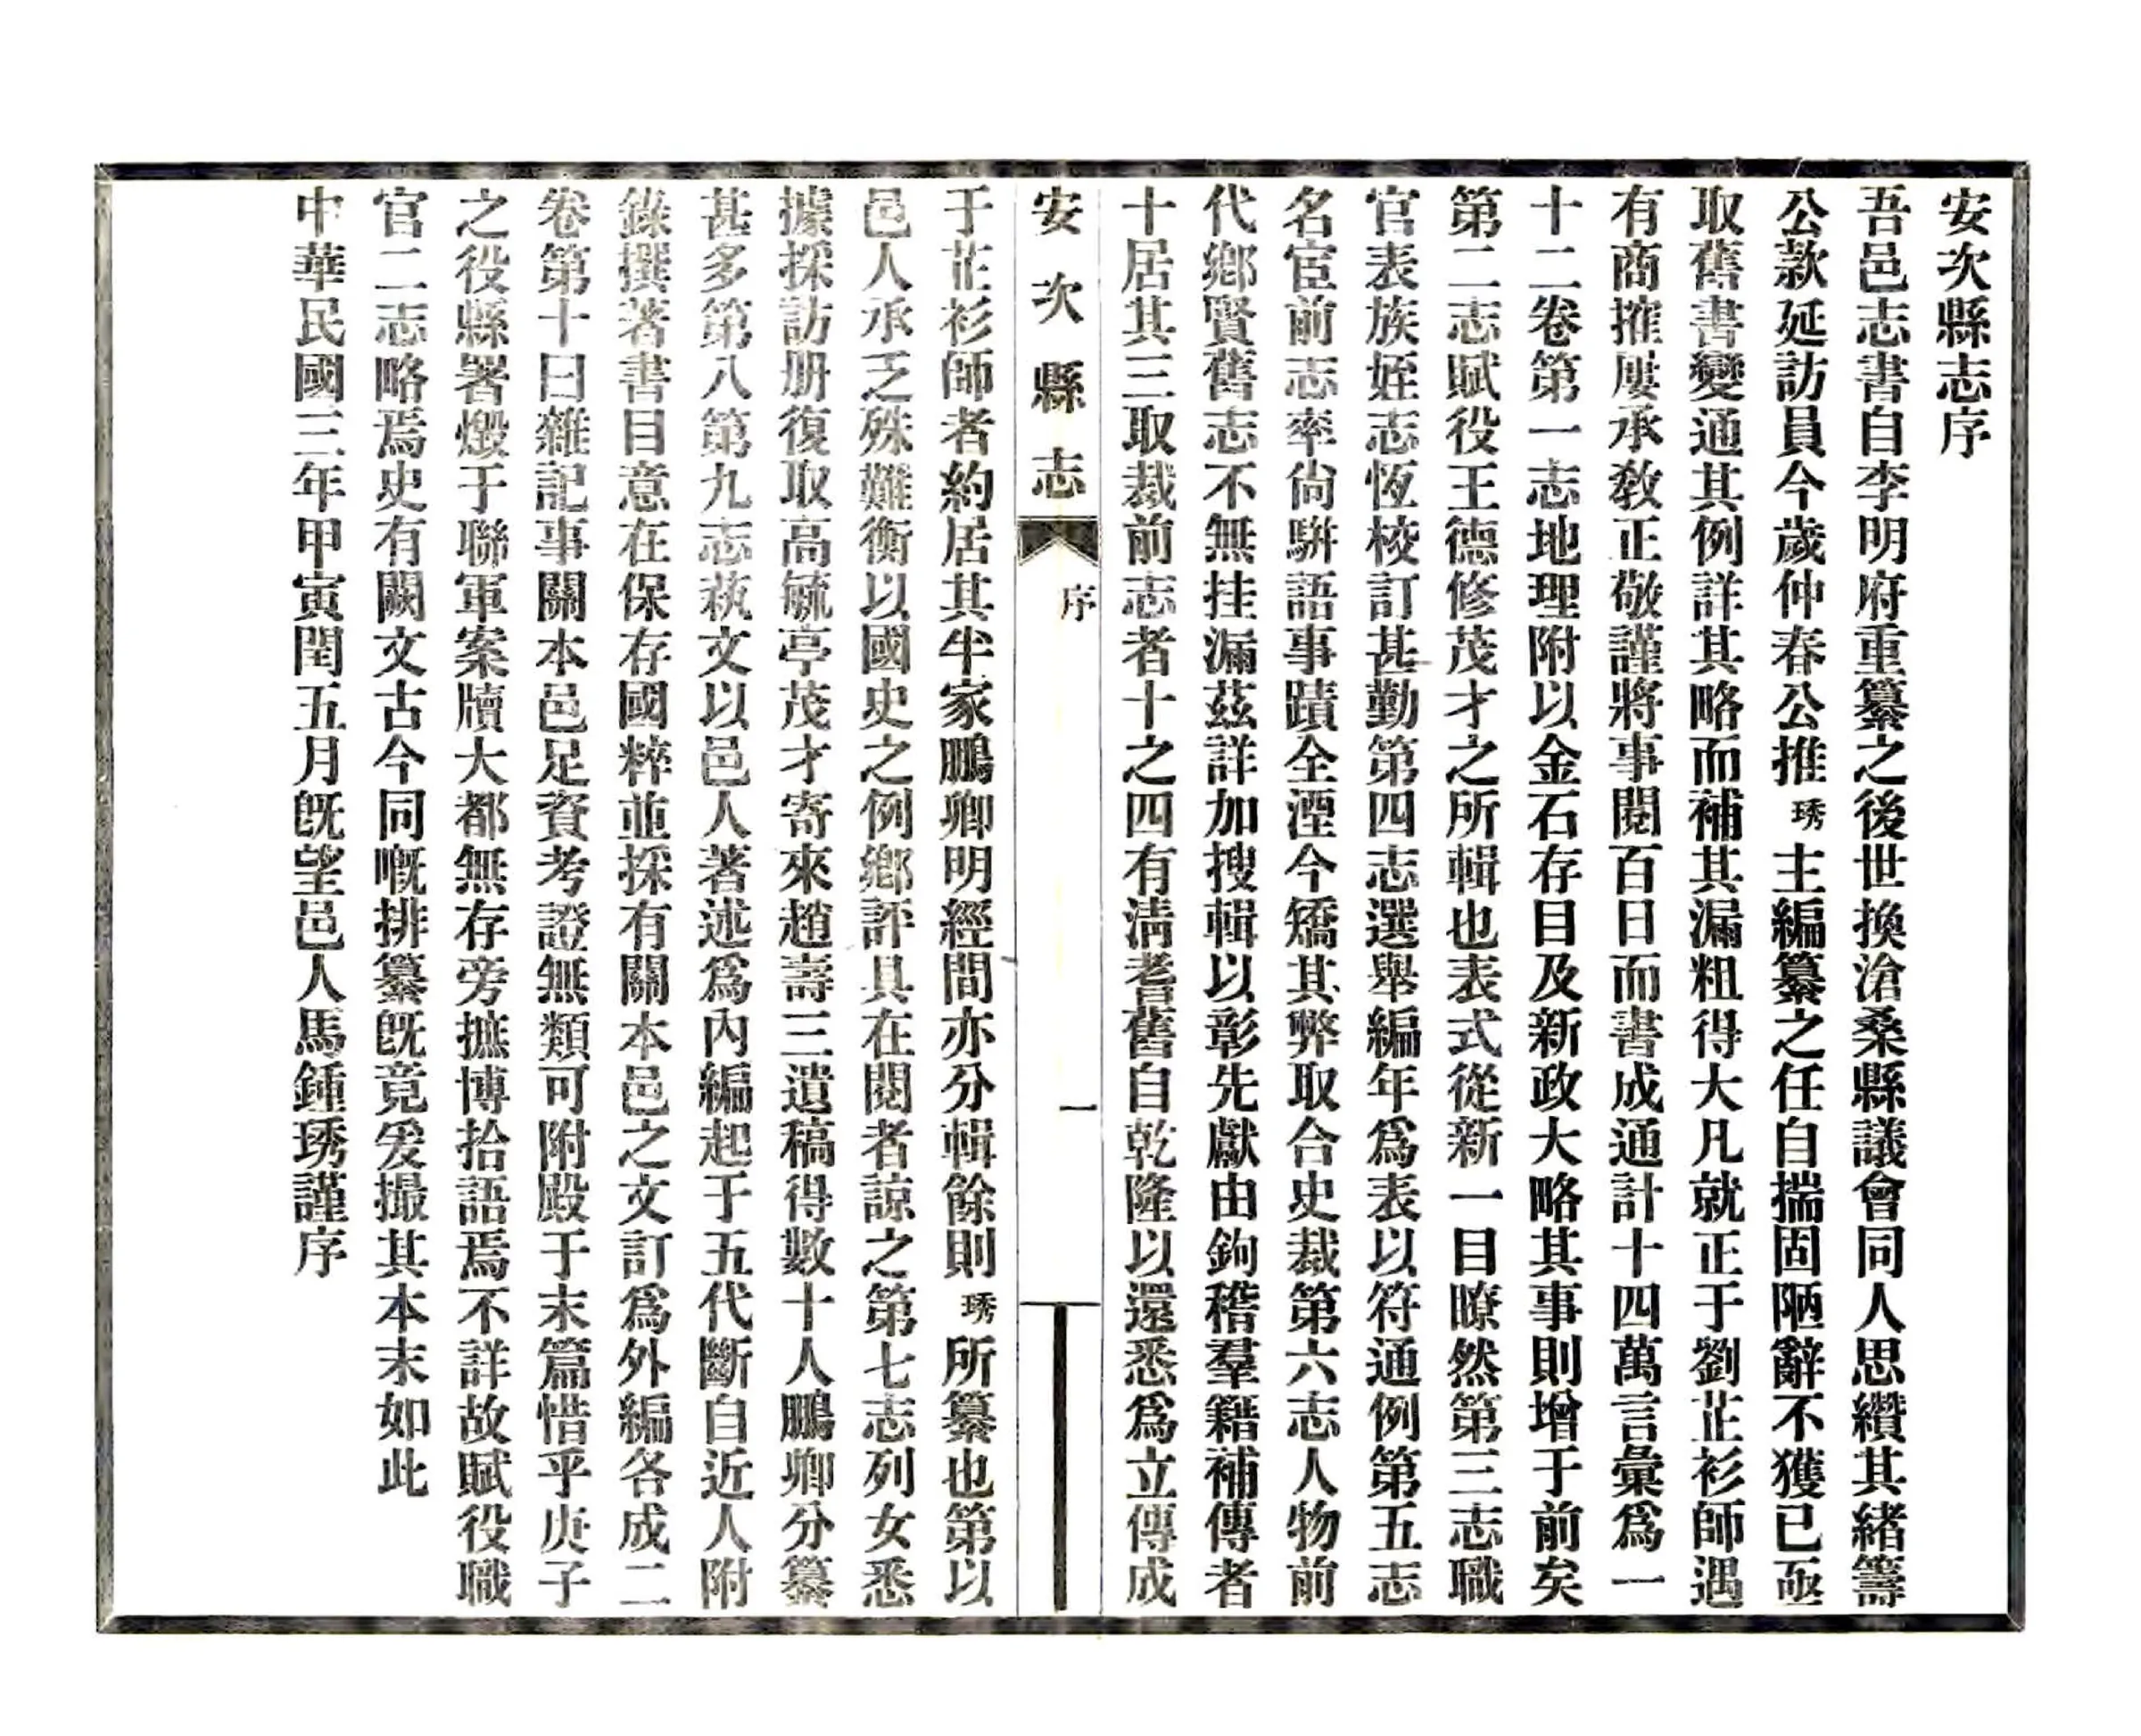 安次縣志序
吾邑志書自李明府重纂之後世換滄桑縣議會同人思纘其緒籌
公款延訪員今歲仲春公推琇主編纂之任自揣固陋辭不獲已亟
取舊書變通其例詳其略而補其漏粗得大凡就正于劉芷衫師遇
有商搉屢承敎正敬謹將事閱百日而書成通計十四萬言彙爲一
十二卷第一志地理附以金石存目及新政大略其事則增于前矣
第二志賦役王德修茂才之所輯也表式從新一目瞭然第三志職
官表族姪志恆校訂甚勤第四志選舉編年爲表以符通例第五志
名宦前志率尙騈語事蹟全湮今矯其弊取合史裁第六志人物前
代鄕賢舊志不無挂漏茲詳加搜輯以彰先獻由鉤稽羣籍補傳者
十居其三取裁前志者十之四有淸耆舊自乾隆以還悉爲立傳成
安次縣志
序
一
于芷衫師者約居其半家鵬卿明經間亦分輯餘則琇所纂也第以
邑人承乏殊難衡以國史之例鄕評具在閱者諒之第七志列女悉
據採訪册復取高毓亭茂才寄來趙壽三遺稿得數十人鵬卿分纂
甚多第八第九志藝文以邑人著述爲內編起于五代斷自近人附
錄撰著書目意在保存國粹並採有關本邑之文訂爲外編各成二
卷第十曰雜記事關本邑足資考證無類可附殿于末篇惜乎庚子
之役縣署燬于聯軍案牘大都無存旁摭博拾語焉不詳故賦役職
官二志略焉史有闕文古今同嘅排纂旣竟爰撮其本末如此
中華民國三年甲寅閏五月旣望邑人馬鍾琇謹序